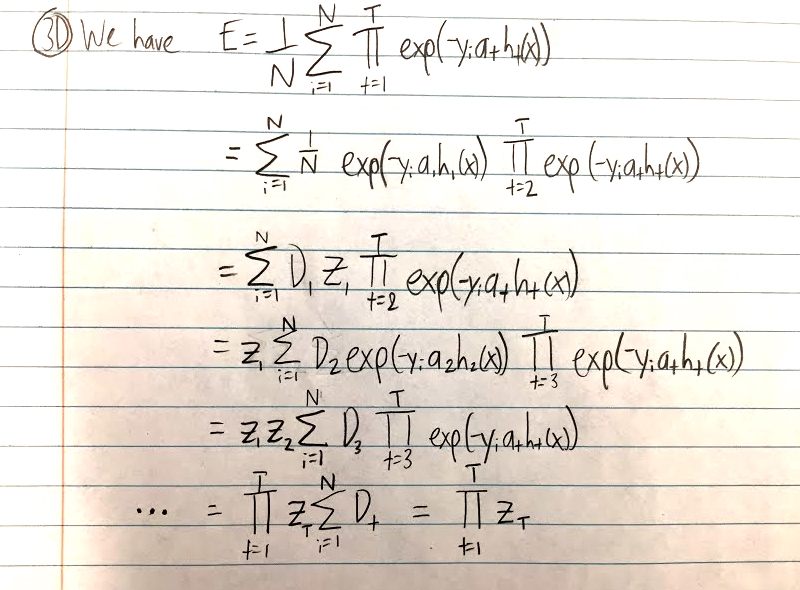 3D We have E = 1/N ∑_{i=1}^{N} ∏_{t=1}^{T} exp(-y_i a_t h_t(x))
= ∑_{i=1}^{N} 1/N exp(-y_i a_1 h_1(x)) ∏_{t=2}^{T} exp(-y_i a_t h_t(x))
= ∑_{i=1}^{N} D_1 Z_1 ∏_{t=2}^{T} exp(-y_i a_t h_t(x))
= Z_1 ∑_{i=1}^{N} D_2 exp(-y_i a_2 h_2(x)) ∏_{t=3}^{T} exp(-y_i a_t h_t(x))
= Z_1 Z_2 ∑_{i=1}^{N} D_3 ∏_{t=3}^{T} exp(-y_i a_t h_t(x))
... = ∏_{t=1}^{T} Z_T ∑_{i=1}^{N} D_t = ∏_{t=1}^{T} Z_T